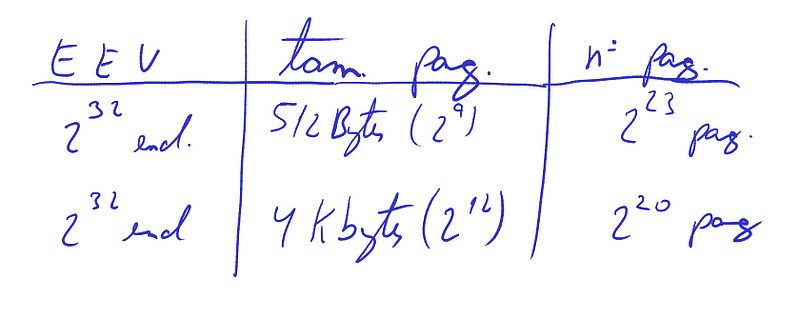 E E V tam. pag. nº pag.
2^32 end. 512 Bytes (2^9) 2^23 pag.
2^32 end 4 Kbytes (2^12) 2^20 pag